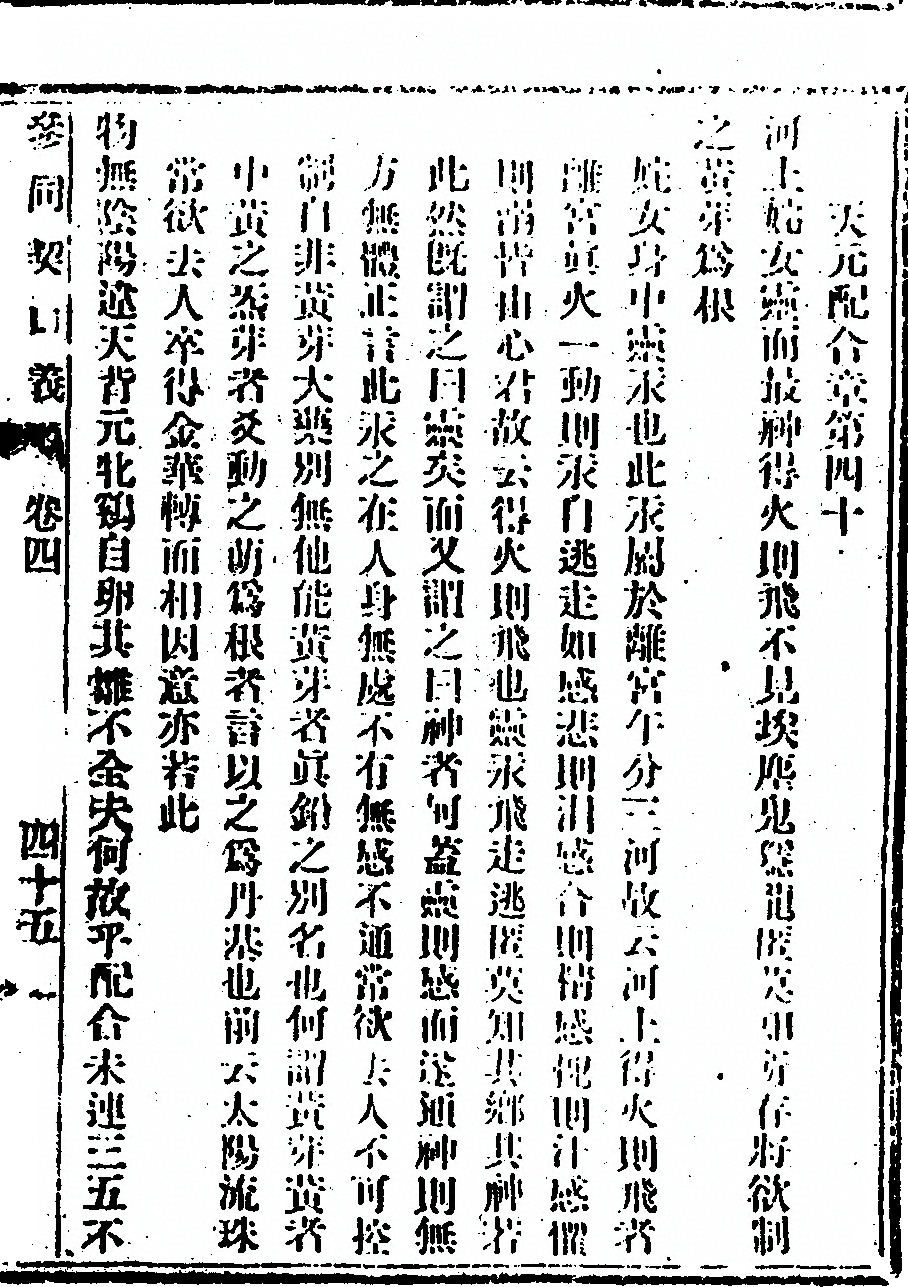 天元配合章第四十
河上姹女靈而最神得火則飛不見埃塵鬼隱龍匿莫知所存將欲制
之黃芽為根
姹女身中靈汞也此汞屬於離宮午分三河故云河上得火則飛者
離宮真火一動則汞自逃走如感悲則泪感合則情感愧則汗感懼
則溺皆由心君故云得火則飛也靈汞飛走逃匿莫知其鄉其神若
此然旣謂之曰靈矣而又謂之曰神者何蓋靈則感而遂通神則無
方無體正言此汞之在人身無處不有無感不通常欲去人不可控
制自非黃芽大藥別無他能黃芽者真鉛之別名也何謂黃芽黃者
中黃之炁芽者爻動之萌為根者言以之為丹基也前云太陽流珠
常欲去人卒得金華轉而相因意亦若此
物無陰陽違天背元牝鷄自卵其雛不全夫何故乎配合未連三五不
參同契口義 卷四 四十五